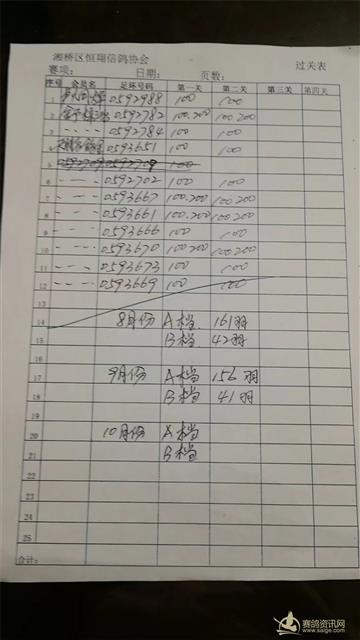 湘桥区恒翔信鸽协会
赛项： 日期： 页数： 过关表
序号 会员名 足环号码 第一关 第二关 第三关 第四关
1 0592988 100 100
2 0592782 100.200 100.200
3 ---- 0592784 100 100
4 0593651 100 100
5 0592709 100
6 --- 0592702 100 100
7 --- 0593667 100.200 100.200
8 --- 0593661 100.200 100.200
9 --- 0593666 100 100
10 --- 0593670 100.200 100.200
11 --- 0593673 100 100
12 --- 0593669 100 100
13
14 8月份 A档 161羽
15 B档 42羽
16
17 9月份 A档 156羽
18 B档 41羽
19
20 10月份 A档
21 B档
22
23
24
25
合计：
赛鸽资讯网
www.saige.com